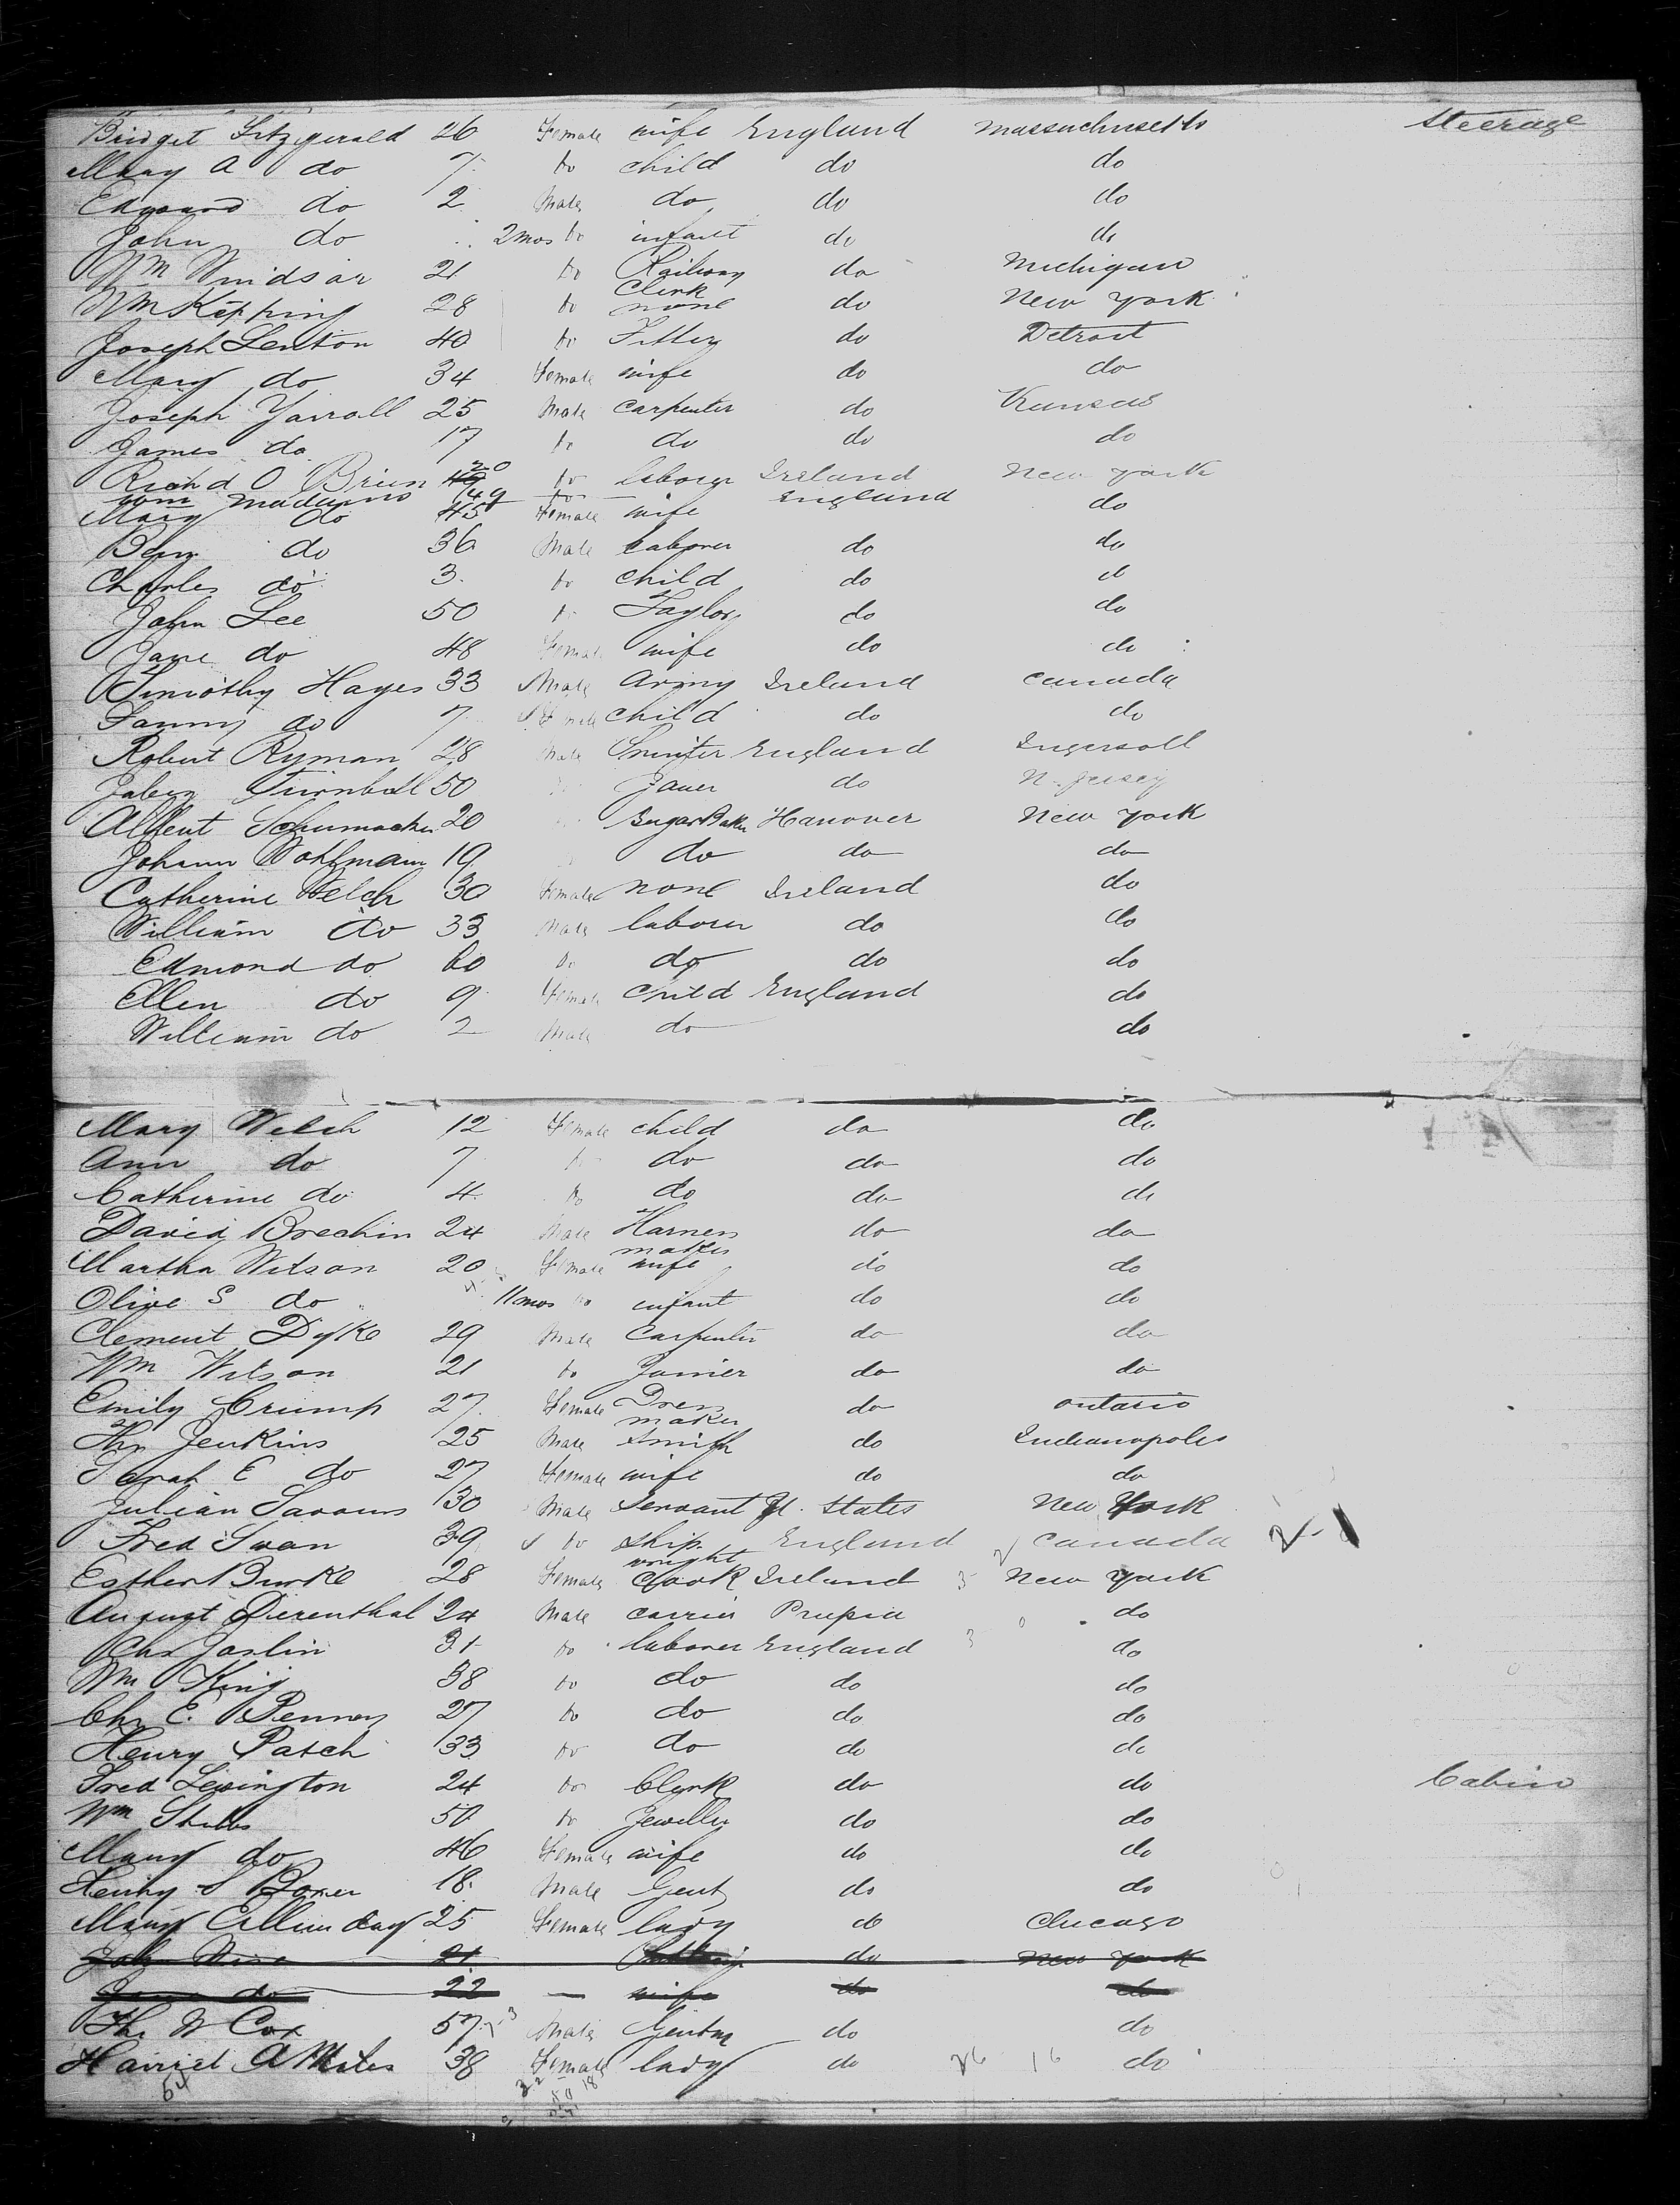 Bridget Fitzgerald 26 Female wife England Massachusetts Steerage
Mary A do 7 do child do do
Edward do 2 Male do do do
John do 2 mos do infant do do
Wm Windsor 21 do Railway Clerk do Michigan
Wm Kipping 28 do none do New York
Joseph Lenton 40 do Fitter do Detroit
Mary do 34 Female wife do do
Joseph Yarrall 25 Male carpenter do Kansas
James do 17 do do do do
Richd O Brien 20 do laborer Ireland New York
Wm 49 do England
Mary do 45 Female wife do
Benj do 36 Male laborer do do
Charles do 3 do child do do
John Lee 50 do Taylor do do
Jane do 48 Female wife do do
Timothy Hayes 33 Male Army Ireland Canada
Fanny do 7 Female child do do
Robert Ryman 28 Male England Ingersoll
Jabez Turnbull 50 do N. Jersey
Albert Schumacher 20 Sugar Baker Hanover New York
Johann Wohlmann 19 do do do
Catherine Welch 30 Female none Ireland do
William do 33 Male laborer do do
Edmond do 60 do do do do
Ellen do 9 Female child England do
William do 2 Male do do
Mary Welch 12 Female child do do
Ann do 7 do do do do
Catherine do 4 do do do do
David Brechin 24 Male Harness maker do do
Martha Wilson 20 Female wife do do
Olive S do 11 mos do infant do do
Clement Dyke 29 Male Carpenter do do
Wm Wilson 21 do Joiner do do
Emily Crump 27 Female Dress maker do Ontario
Ths Jenkins 25 Male Smith do Indianapolis
Sarah E do 27 Female wife do do
Julian 30 Male Servant U. States New York
Fred Swan 39 do ship wright England Canada
Esther Burke 28 Female Cook Ireland New York
August Dierenthal 24 Male carrier Prussia do
Chs Joslin 31 do laborer England do
Wm King 38 do do do do
Chs E. Penney 27 do do do do
Henry Patch 33 do do do do
Fred Lexington 24 do Clerk do do Cabin
Wm Stubbs 50 do Jeweller do do
Mary do 46 Female wife do do
Henry S Boxer 18 Male Gent do do
Mary Ellen Day 25 Female lady do Chicago
John 21 do New York
do 22 wife do do
Ths W Cox 57 Male Gentm do do
Harriet A Miles 38 Female lady do do
54